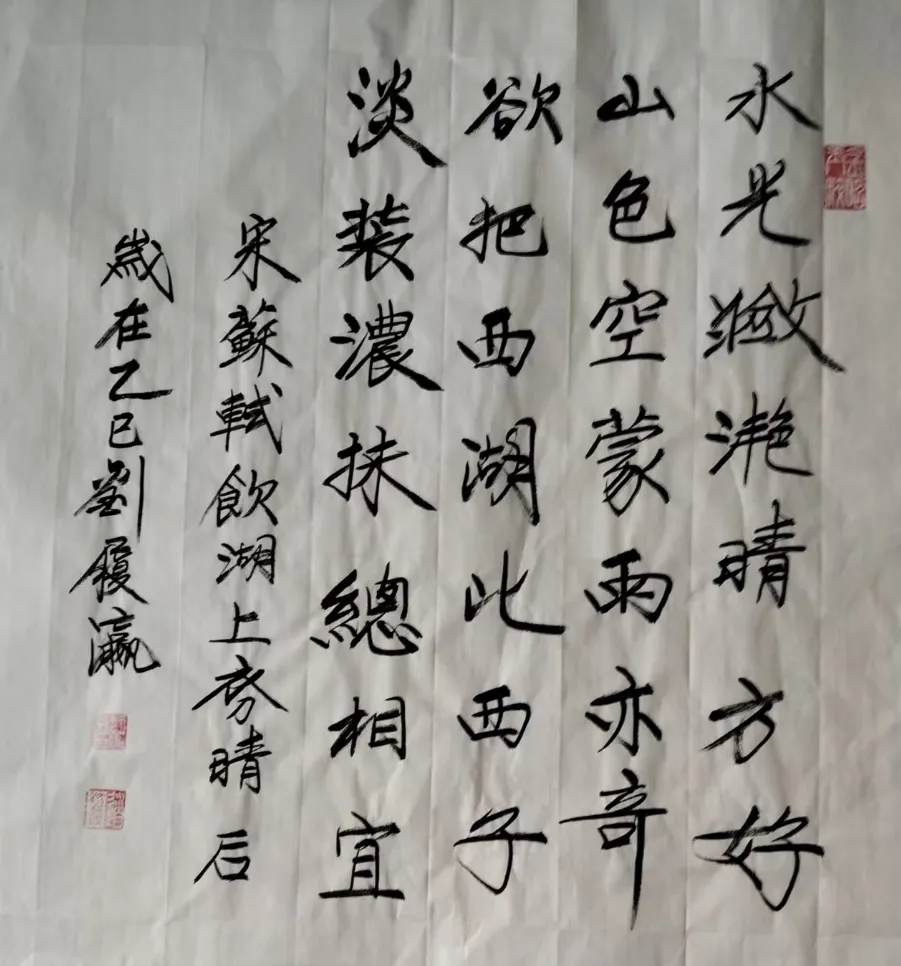 水光瀲滟晴方好
山色空蒙雨亦奇
欲把西湖比西子
淡装濃抹總相宜
宋蘇軾飲湖上初晴后
歲在乙巳劉履瀛